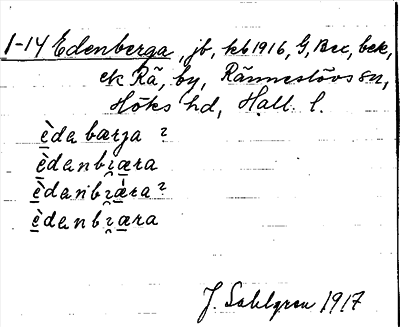 1-14 Edenberga, jb, kb 1916, G, Bec, bek,
ek Rä, by, Ränneslövs sn,
Höks hd, Hall. l.
è̱da bærja ?
è̱danbi̯æra
è̱danbi̯æ̀ra?
è̱danbi̯æra
J. Sahlgren 1917